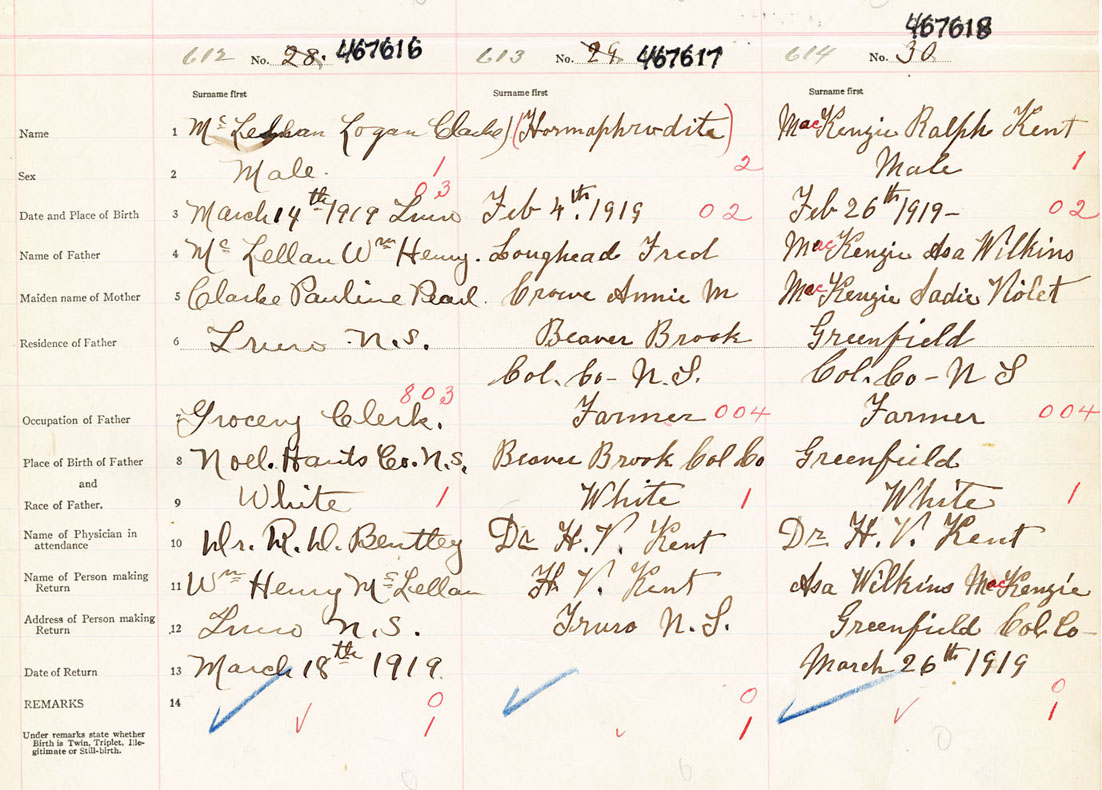 467618
612 No. 28. 467616 613 No. 29 467617 614 No. 30
Surname first Surname first Surname first
Name 1 Mc Lellan Logan Clarke) (Hormaphrodite) MacKenzie Ralph Kent
Sex 2 Male. 1 2 Male 1
03
Date and Place of Birth 3 March 14th 1919 Truro Feb 4th. 1919 02 Feb 26th 1919- 02
Name of Father 4 Mc Lellan Wm Henry. Loughead Fred MacKenzie Asa Wilkins
Maiden name of Mother 5 Clarke Pauline Pearl. Crowe Annie M MacKenzie Sadie Violet
Residence of Father 6 Truro N.S. Beaver Brook Greenfield
Col. Co- N.S. Col. Co- N S
803
Occupation of Father 7 Grocery Clerk. Farmer 004 Farmer 004
Place of Birth of Father 8 Noel. Hants Co. N.S. Beaver Brook Col Co Greenfield
and
Race of Father. 9 White 1 White 1 White 1
Name of Physician in
attendance 10 Dr. R. D. Bentley Dr H. V. Kent Dr H. V. Kent
Name of Person making
Return 11 Wm Henry McLellan H. V. Kent Asa Wilkins MacKenzie
Address of Person making
Return 12 Truro N.S. Truro N.S. Greenfield Col. Co-
Date of Return 13 March 18th 1919. March 26th 1919
REMARKS 14 0 0 0
1 1 1
Under remarks state whether
Birth is Twin, Triplet, Ille-
gitimate or Still-birth.